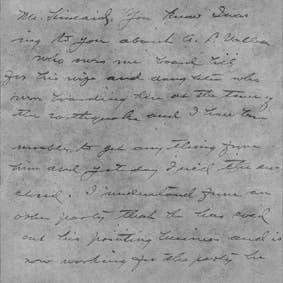 Mr. Kincaid, You know I was
ing to you about A. P. Vallen
who owes me board bill
for his wife and daughter who
were boarding here at the time of
the earthquake and I have been
unable to get anything from
him and yet say I need the
. I understand from an
other party that he has sold
out his printing business and is
now working for the party he